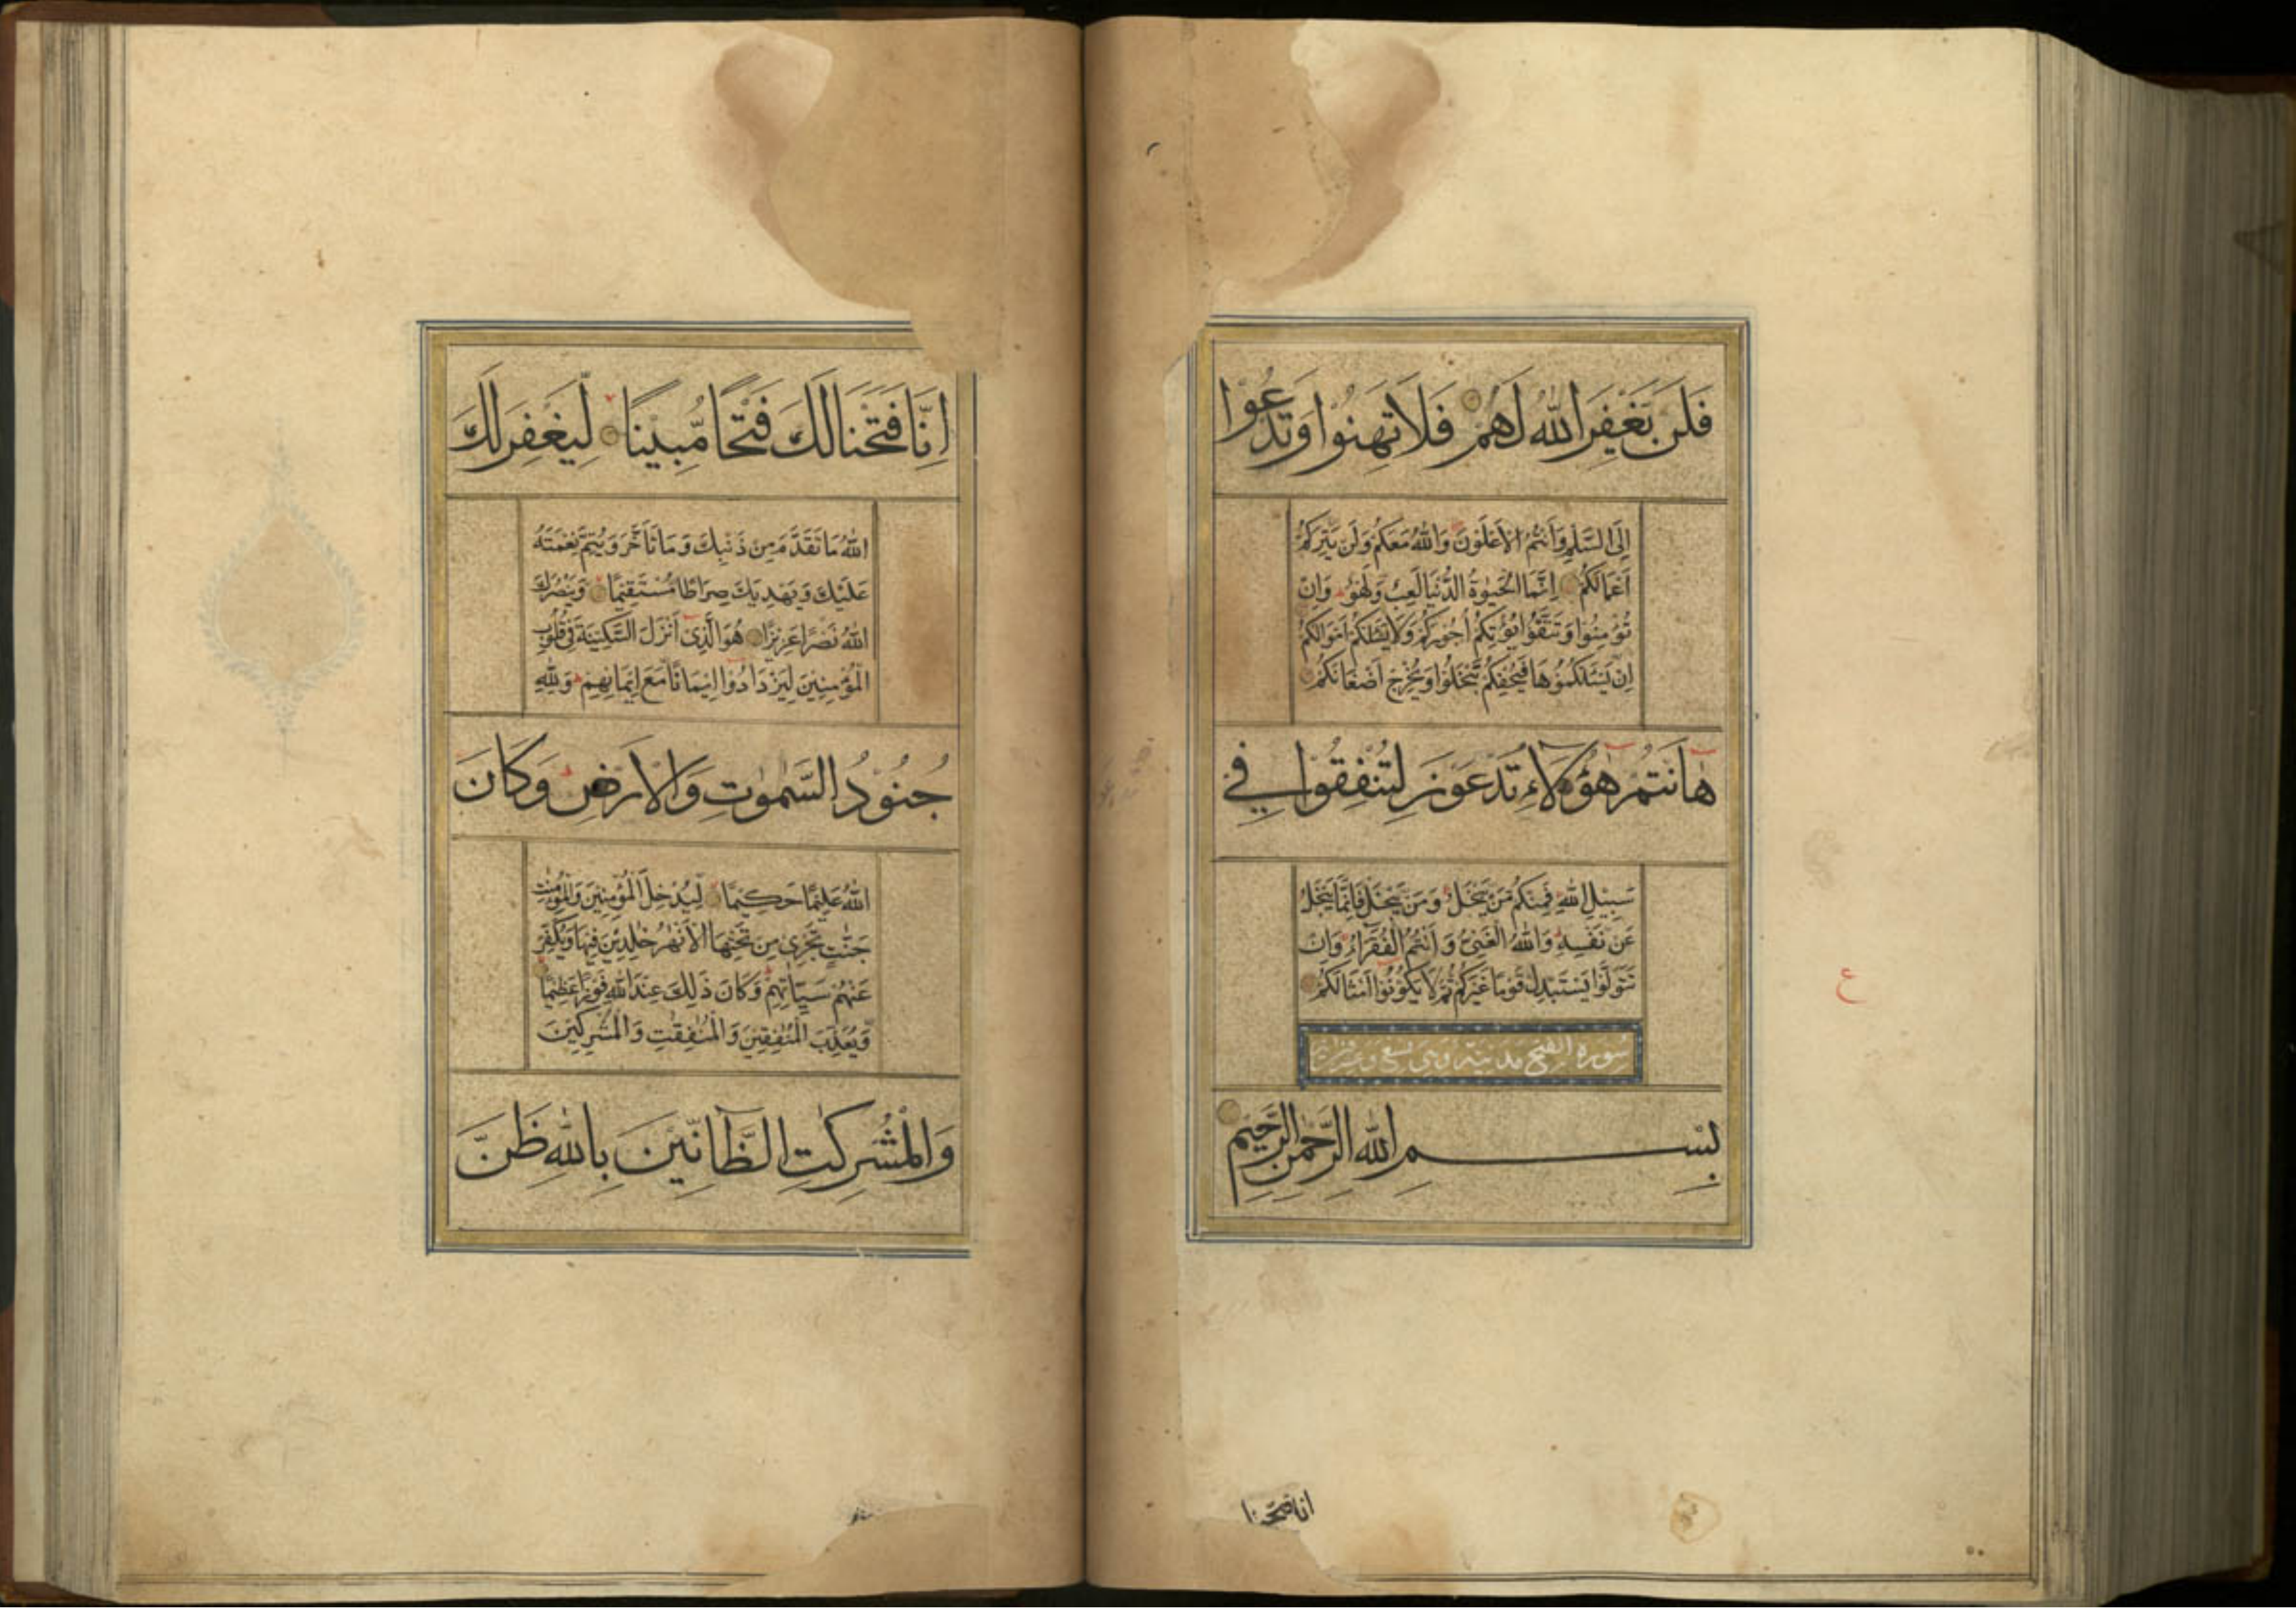 فَلَنْ يَغْفِرَ اللّٰهُ لَهُمْ فَلَا تَهِنُوا وَتَدْعُوْا
اِلَى السَّلْمِ وَاَنْتُمُ الْاَعْلَوْنَ وَاللّٰهُ مَعَكُمْ وَلَنْ يَتِرَكُمْ
اَعْمَالَكُمْ اِنَّمَا الْحَيٰوةُ الدُّنْيَا لَعِبٌ وَلَهْوٌ وَاِنْ
تُؤْمِنُوا وَتَتَّقُوْا يُؤْتِكُمْ اُجُوْرَكُمْ وَلَا يَسْئَلْكُمْ اَمْوَالَكُمْ
اِنْ يَسْئَلْكُمُوْهَا فَيُحْفِكُمْ تَبْخَلُوْا وَيُخْرِجْ اَضْغَانَكُمْ
هٰٓاَنْتُمْ هٰٓؤُلَاءِ تُدْعَوْنَ لِتُنْفِقُوْا فِي
سَبِيْلِ اللّٰهِ فَمِنْكُمْ مَنْ يَبْخَلُ وَمَنْ يَبْخَلْ فَاِنَّمَا يَبْخَلُ
عَنْ نَفْسِهِ وَاللّٰهُ الْغَنِيُّ وَاَنْتُمُ الْفُقَرَاءُ وَاِنْ
تَتَوَلَّوْا يَسْتَبْدِلْ قَوْمًا غَيْرَكُمْ ثُمَّ لَا يَكُوْنُوْا اَمْثَالَكُمْ
سورة الفتح مدنية وهي تسع وعشرون اية
بِسْمِ اللّٰهِ الرَّحْمٰنِ الرَّحِيْمِ
انا فتحنا
ع
اِنَّا فَتَحْنَا لَكَ فَتْحًا مُّبِيْنًا لِّيَغْفِرَ لَكَ
اللّٰهُ مَا تَقَدَّمَ مِنْ ذَنْبِكَ وَمَا تَاَخَّرَ وَيُتِمَّ نِعْمَتَهُ
عَلَيْكَ وَيَهْدِيَكَ صِرَاطًا مُسْتَقِيْمًا وَيَنْصُرَكَ
اللّٰهُ نَصْرًا عَزِيْزًا هُوَ الَّذِيْ اَنْزَلَ السَّكِيْنَةَ فِيْ قُلُوْبِ
الْمُؤْمِنِيْنَ لِيَزْدَادُوْا اِيْمَانًا مَّعَ اِيْمَانِهِمْ وَلِلّٰهِ
جُنُوْدُ السَّمٰوٰتِ وَالْاَرْضِ وَكَانَ
اللّٰهُ عَلِيْمًا حَكِيْمًا لِيُدْخِلَ الْمُؤْمِنِيْنَ وَالْمُؤْمِنٰتِ
جَنّٰتٍ تَجْرِيْ مِنْ تَحْتِهَا الْاَنْهٰرُ خٰلِدِيْنَ فِيْهَا وَيُكَفِّرَ
عَنْهُمْ سَيِّاٰتِهِمْ وَكَانَ ذٰلِكَ عِنْدَ اللّٰهِ فَوْزًا عَظِيْمًا
وَّيُعَذِّبَ الْمُنٰفِقِيْنَ وَالْمُنٰفِقٰتِ وَالْمُشْرِكِيْنَ
وَالْمُشْرِكٰتِ الظَّآنِّيْنَ بِاللّٰهِ ظَنَّ